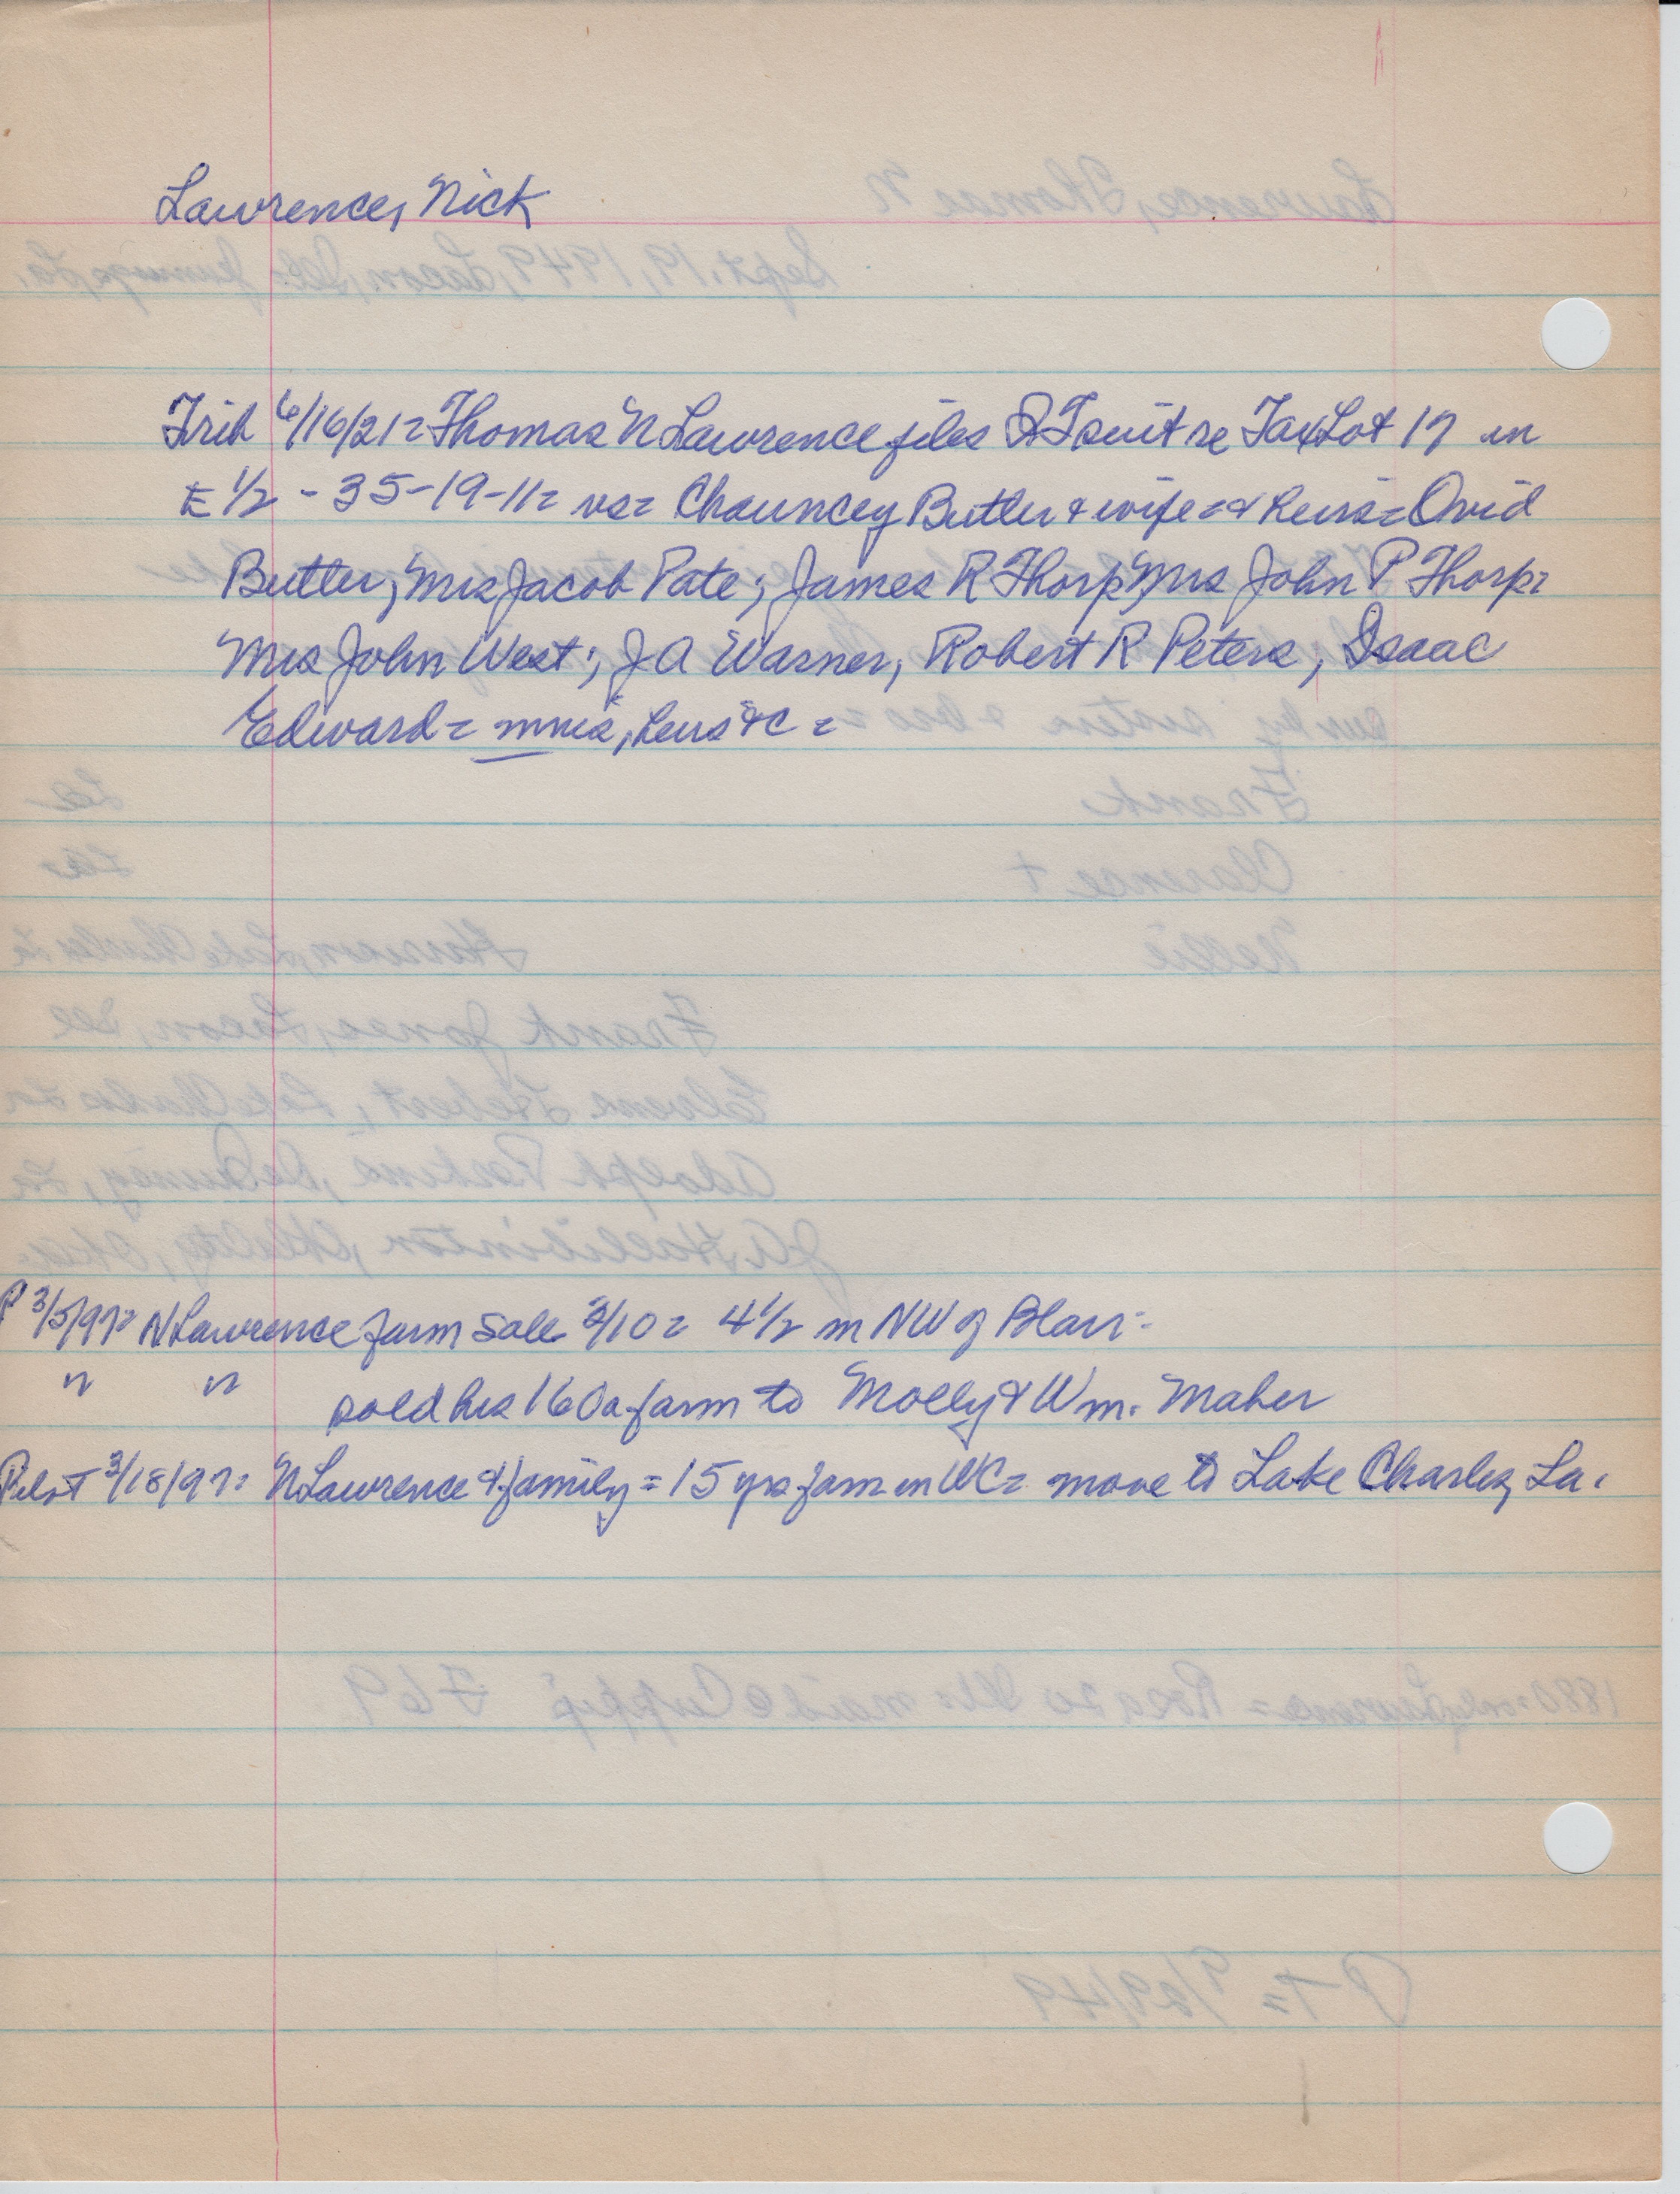 Lawrence, Nick
Trib 6/16/21= Thomas N Lawrence files QT suit re Tax Lot 17 in
E 1/2 - 35-19-11= vs= Chauncey Butler & wife = & heirs= Ovid
Butler; Mrs Jacob Pate; James R Thorp Mrs John P Thorp=
Mrs John West; J A Warner, Robert R Peters, Isaac
Edward= heirs &c =
P 3/5/97= N Lawrence farm sale 3/10= 4 1/2 m NW of Blair-
" " sold his 160a farm to Molly & Wm. Maher
Pilot 3/18/97= N Lawrence & family = 15 yrs farm in WC= move to Lake Charles, La.